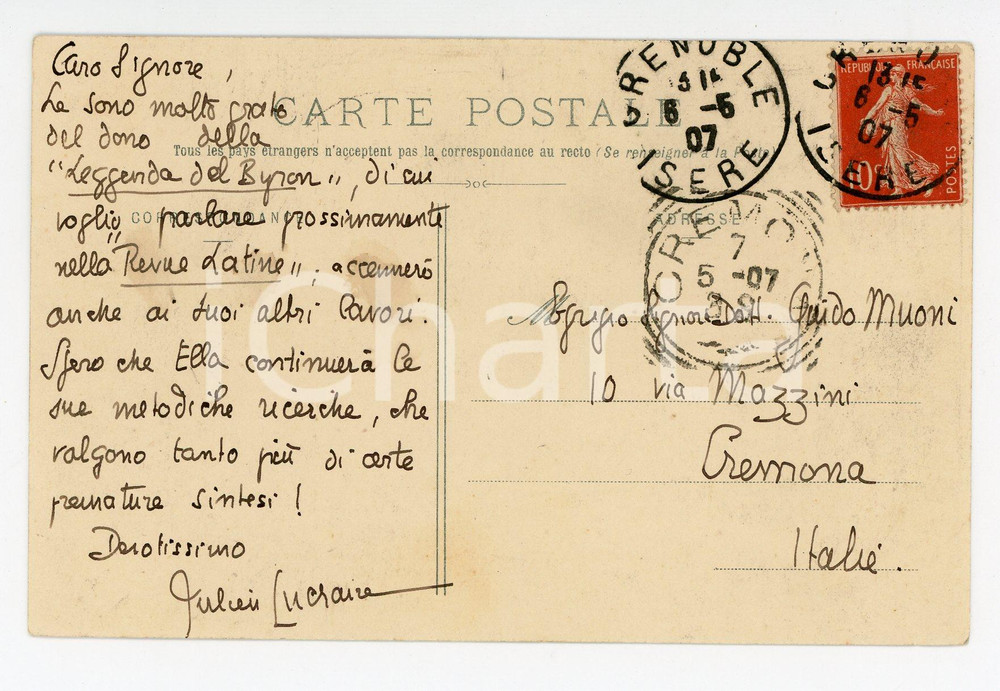 Caro Signore,
Le sono molto grato
del dono della
"Leggenda del Byron", di cui
voglio parlare prossimamente
nella "Revue Latine", accennerò
anche ai suoi altri lavori.
Spero che Ella continuerà le
sue metodiche ricerche, che
valgono tanto più di certe
premature sintesi!
Devotissimo
Julien Luchaire
CARTE POSTALE
Tous les pays étrangers n'acceptent pas la correspondance au recto (Se renseigner à la Poste)
CORRESPONDANCE
ADRESSE
Egregio Signore Dott. Guido Muoni
10 via Mazzini
Cremona
Italie.
GRENOBLE
6 -5
07
ISERE
REPUBLIQUE FRANÇAISE
10c
POSTES
6 -5
07
ISERE
CREMONA
7
5 -07